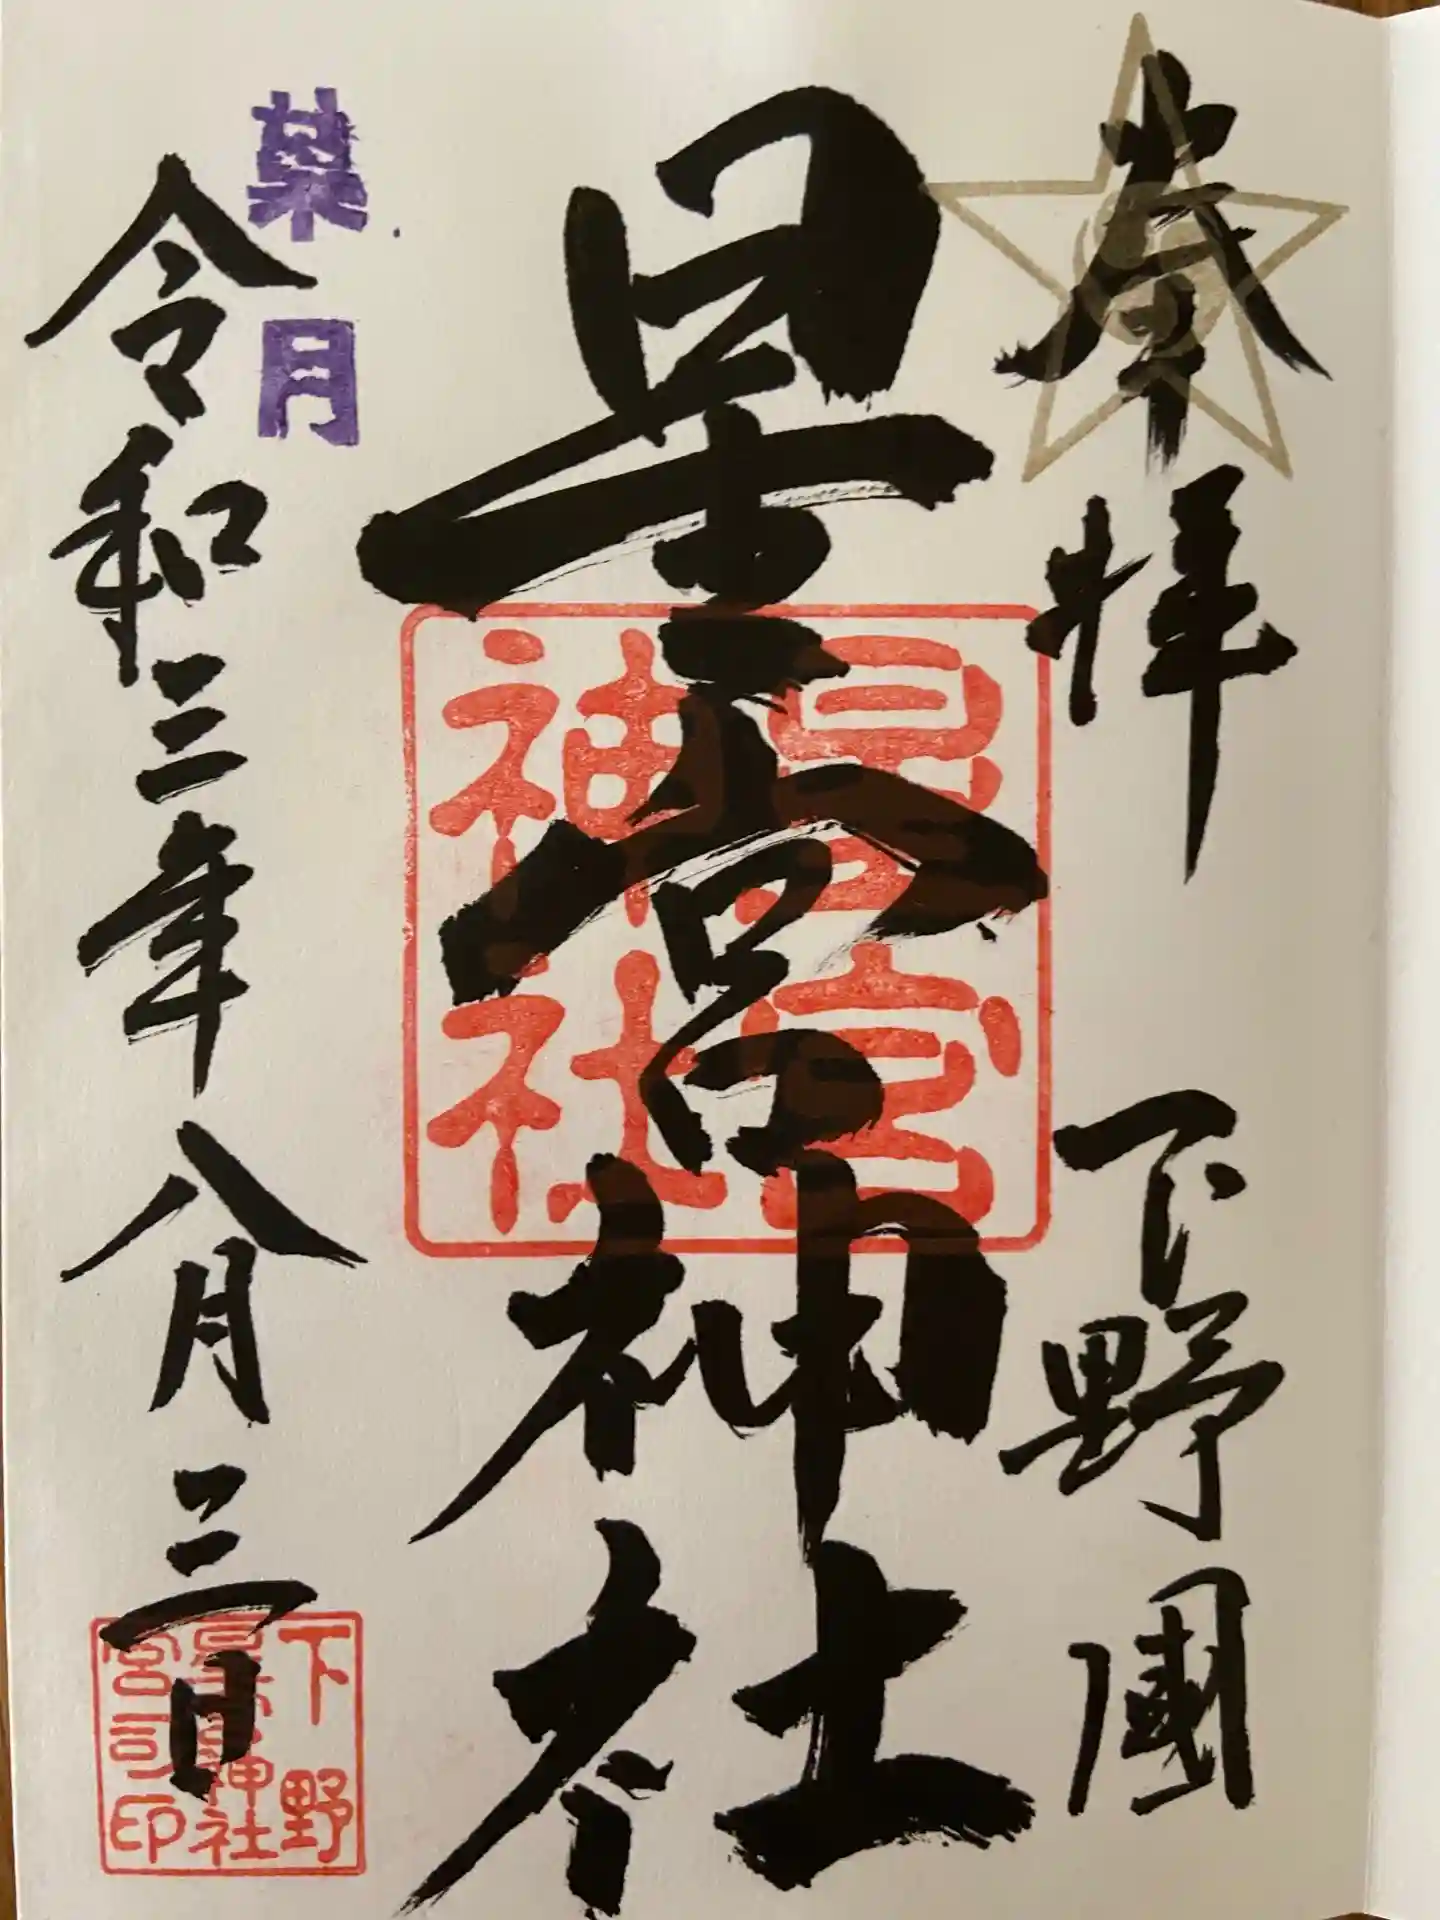 奉拝
下野國
星宮神社
星宮
神社
葉月
令和三年八月三日
下野
星宮神社
宮司印